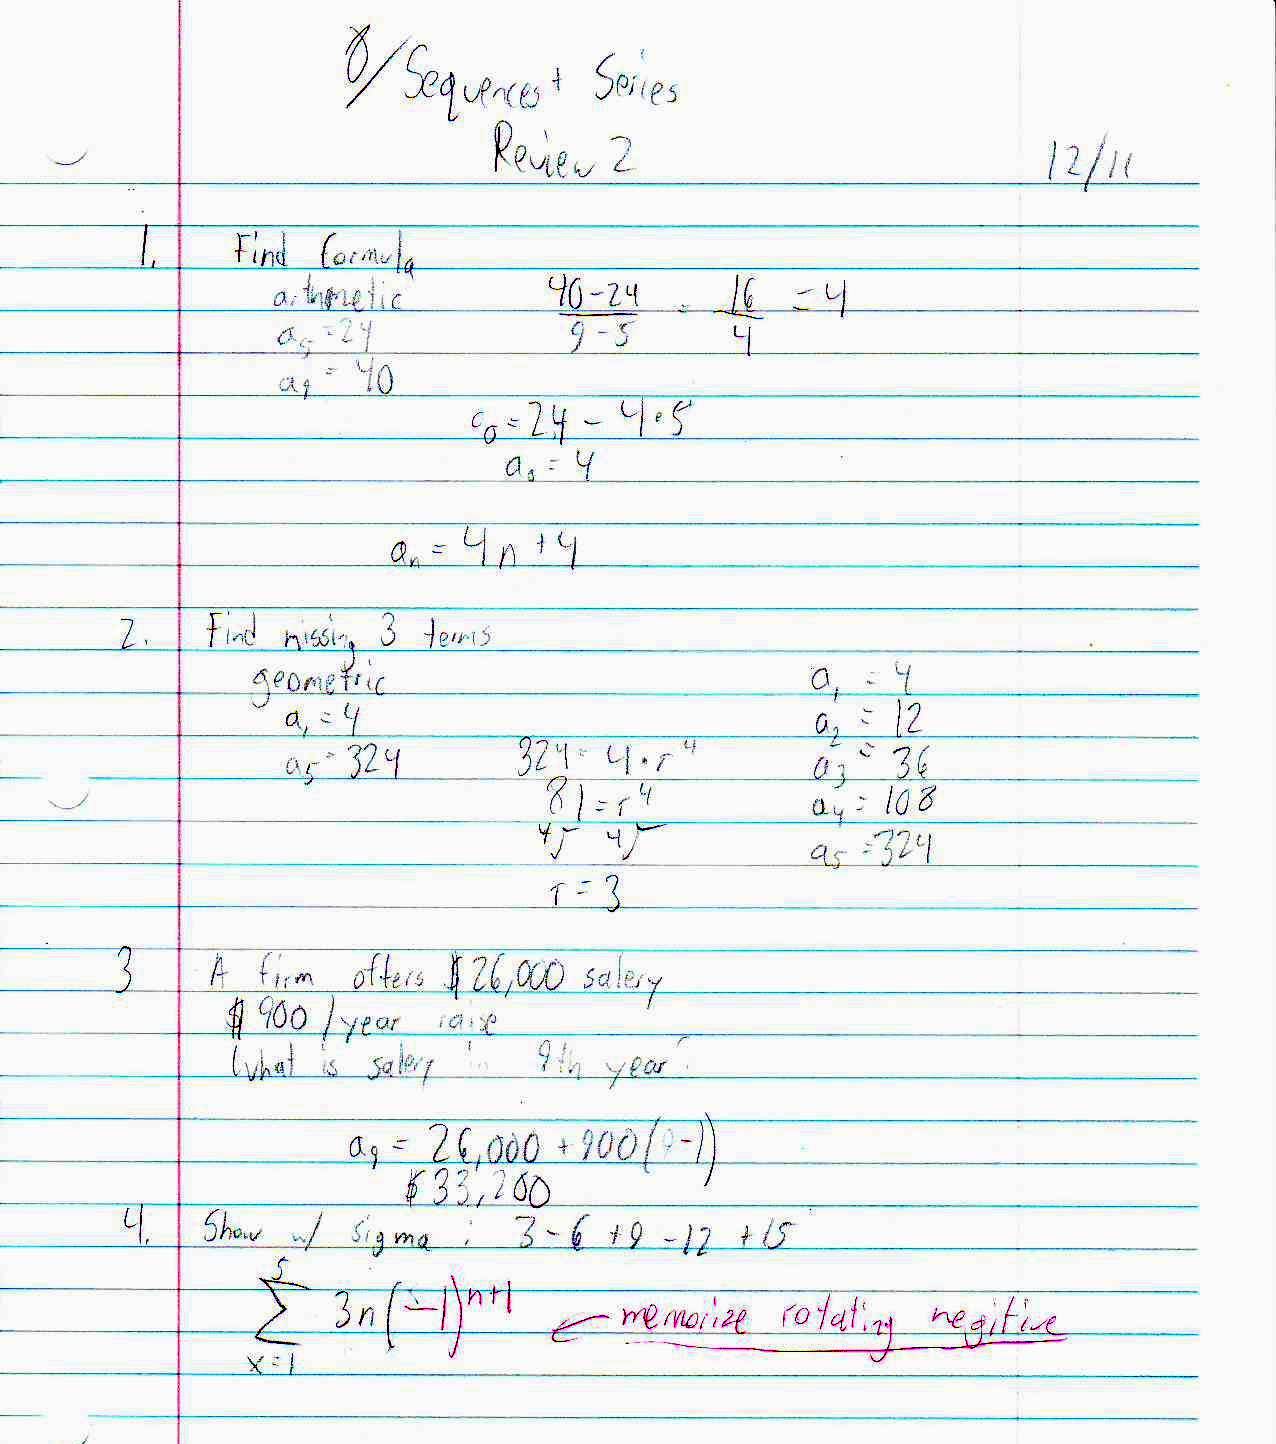 8/Sequences + Series
Review 2
12/11
1. Find formula
arithmetic
a₅ = 24
a₉ = 40
40-24 / 9-5 = 16/4 = 4
a₀ = 24 - 4·5
a₀ = 4
aₙ = 4n + 4
2. Find missing 3 terms
geometric
a₁ = 4
a₅ = 324
324 = 4·r⁴
81 = r⁴
⁴√ ⁴√
r = 3
a₁ = 4
a₂ = 12
a₃ = 36
a₄ = 108
a₅ = 324
3 A firm offers $26,000 salery
$900/year raise
What is salery in 9th year?
a₉ = 26,000 + 900(9-1)
$33,200
4. Show w/ sigma : 3 - 6 + 9 - 12 + 15
5
∑ 3n(-1)ⁿ⁺¹ ← memorize rotating negitive
x=1